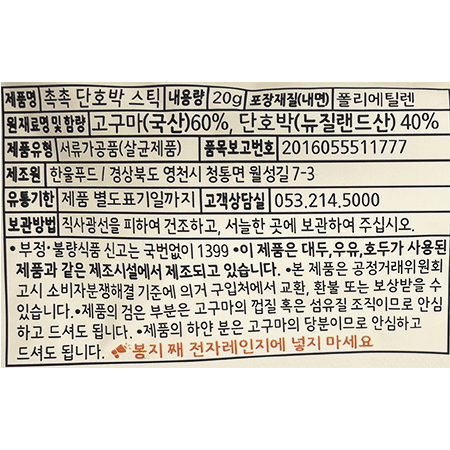 제품명 촉촉 단호박 스틱 내용량 20g 포장재질(내면) 폴리에틸렌
원재료명 및 함량 고구마(국산)60%, 단호박(뉴질랜드산) 40%
제품유형 서류가공품(살균제품) 품목보고번호 2016055511777
제조원 한울푸드 / 경상북도 영천시 청통면 월성길 7-3
유통기한 제품 별도표기일까지 고객상담실 053.214.5000
보관방법 직사광선을 피하여 건조하고, 서늘한 곳에 보관하여 주십시오.
•부정·불량식품 신고는 국번없이 1399 •이 제품은 대두,우유,호두가 사용된
제품과 같은 제조시설에서 제조되고 있습니다. •본 제품은 공정거래위원회
고시 소비자분쟁해결 기준에 의거 구입처에서 교환, 환불 또는 보상받을 수
있습니다. •제품의 검은 부분은 고구마의 껍질 혹은 섬유질 조직이므로 안심
하고 드셔도 됩니다. •제품의 하얀 분은 고구마의 당분이므로 안심하고
드셔도 됩니다. 봉지 째 전자레인지에 넣지 마세요